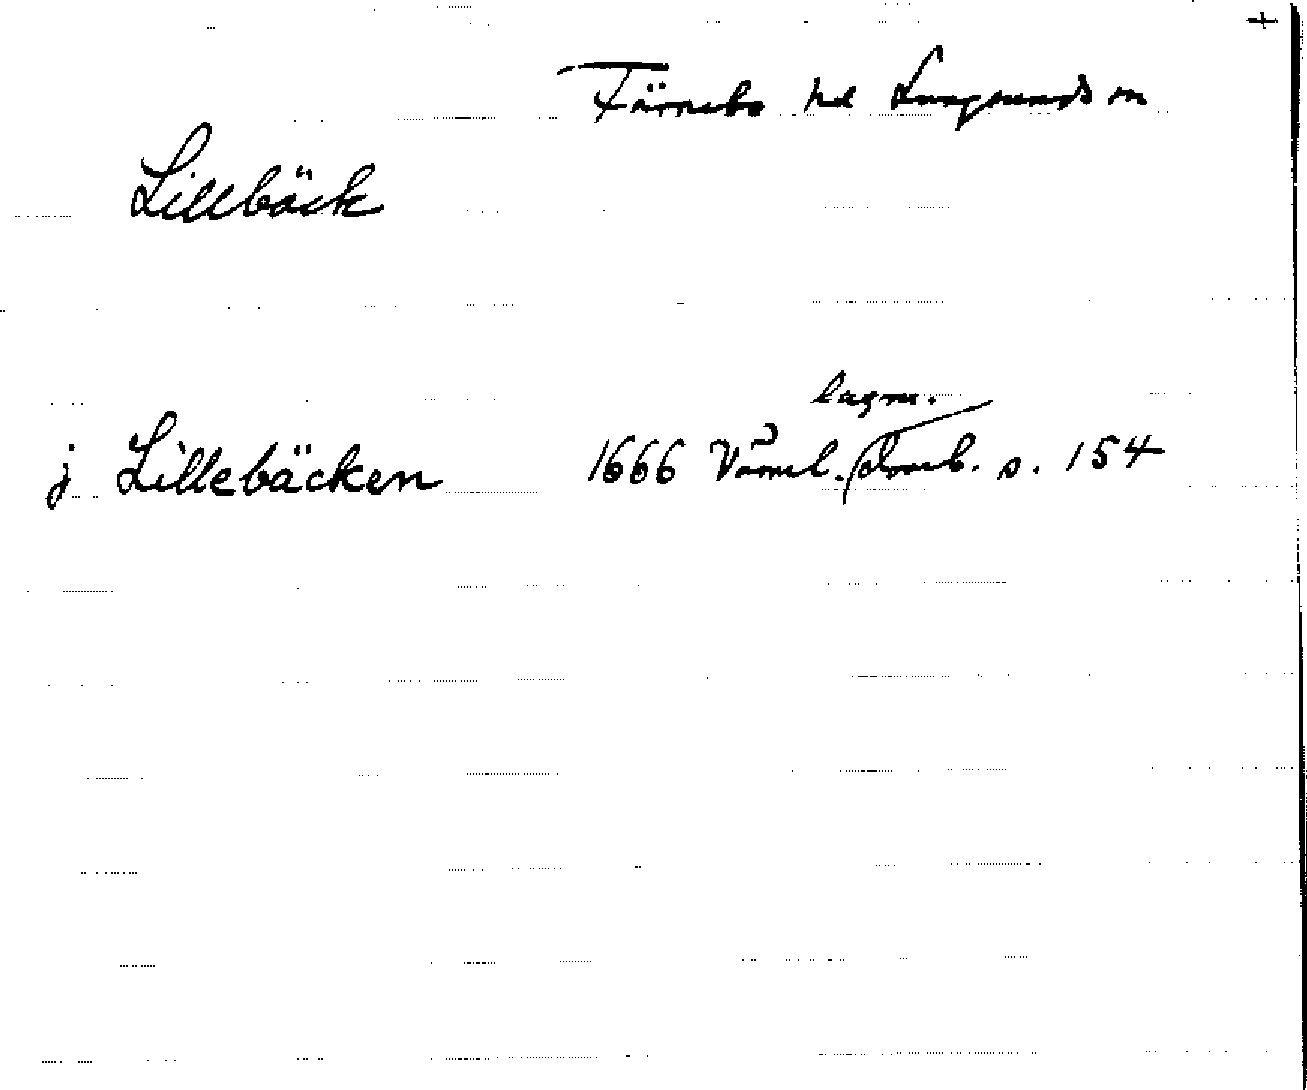 +
Färnebo hd Lungsunds sn
Lillbäck
lagm.
j Lillebäcken 1666 Värml. s. 154